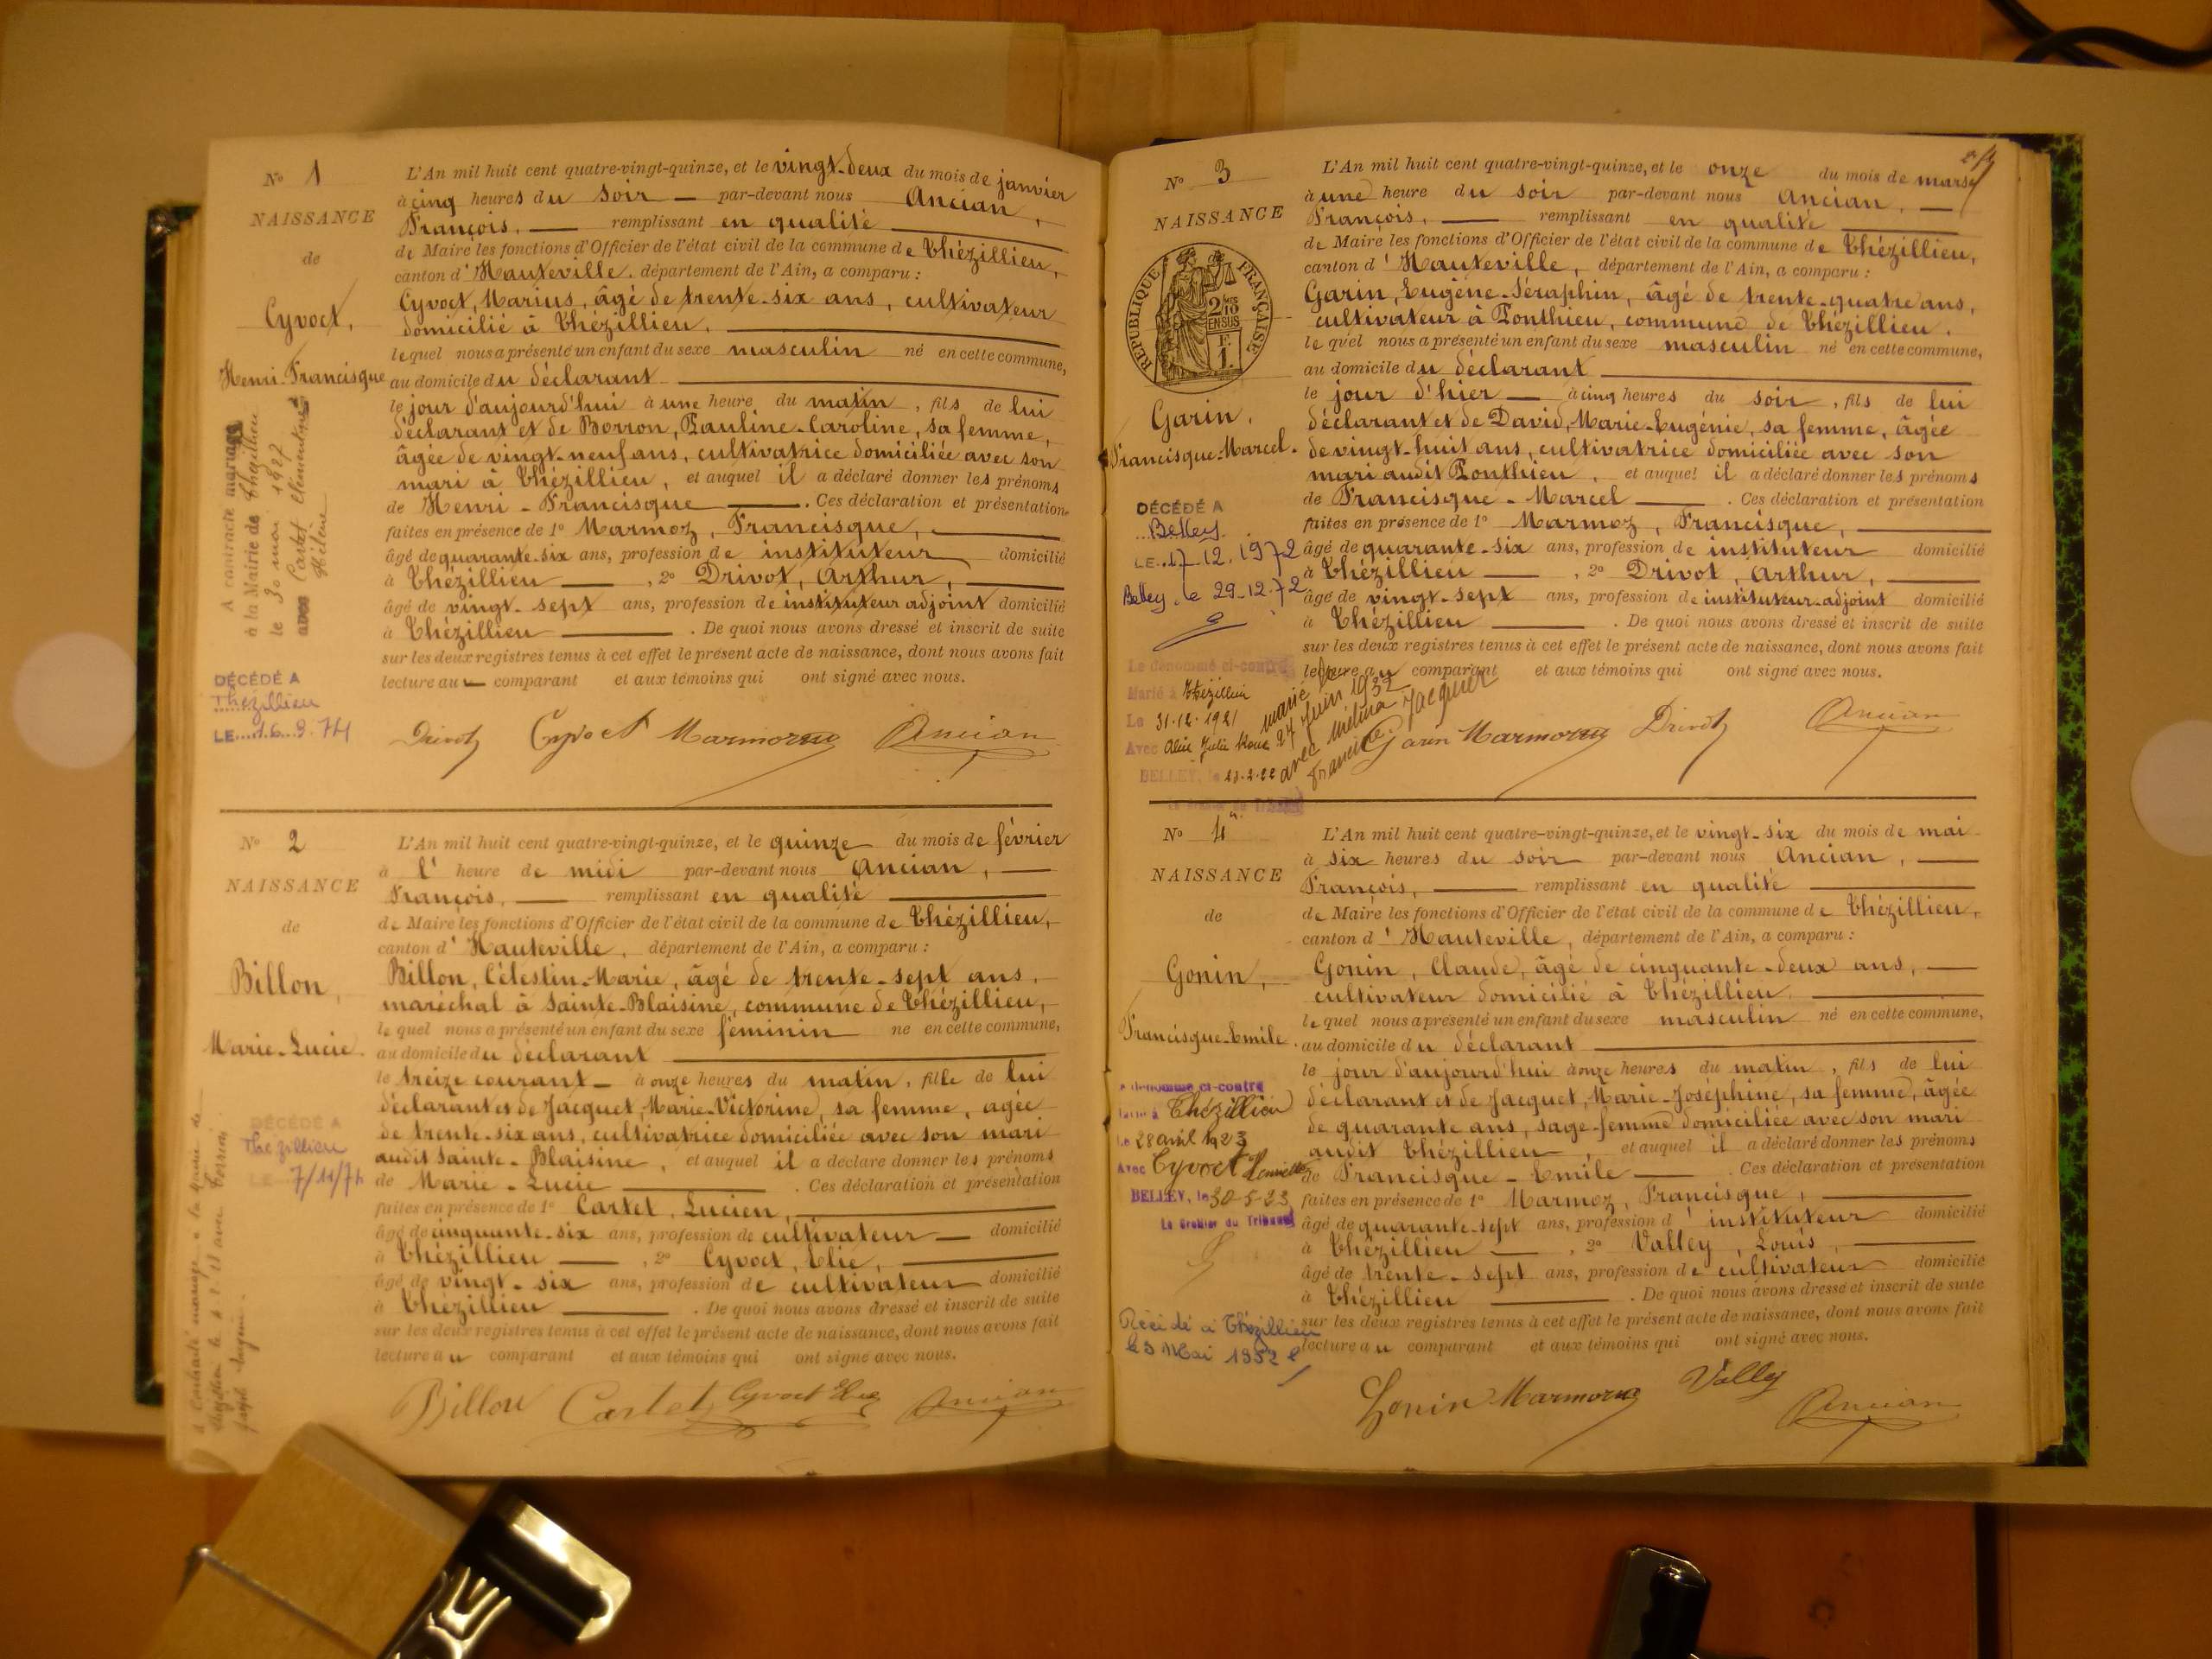 N° 1
NAISSANCE
de
Cyvoct,
Henri-Francisque
A contracté mariage
à la Mairie de Thézillieu
le 30 mai 1927
avec Cartet Clémentine
Hélène
DÉCÉDÉ A
Thézillieu
LE 16.9.74
L'An mil huit cent quatre-vingt-quinze, et le vingt-deux du mois de janvier
à cinq heures du soir par-devant nous Ancian,
François, remplissant en qualité
de Maire les fonctions d'Officier de l'état civil de la commune de Thézillieu,
canton d'Hauteville, département de l'Ain, a comparu :
Cyvoct, Marius, âgé de trente-six ans, cultivateur
domicilié à Thézillieu,
lequel nous a présenté un enfant du sexe masculin né en cette commune,
au domicile du déclarant
le jour d'aujourd'hui à une heure du matin, fils de lui
déclarant et de Borron, Pauline-Caroline, sa femme,
âgée de vingt-neuf ans, cultivatrice domiciliée avec son
mari à Thézillieu, et auquel il a déclaré donner les prénoms
de Henri-Francisque. Ces déclaration et présentation
faites en présence de 1° Marmoz, Francisque,
âgé de quarante-six ans, profession de instituteur domicilié
à Thézillieu, 2° Drivot, Arthur,
âgé de vingt-sept ans, profession de instituteur adjoint domicilié
à Thézillieu. De quoi nous avons dressé et inscrit de suite
sur les deux registres tenus à cet effet le présent acte de naissance, dont nous avons fait
lecture au comparant et aux témoins qui ont signé avec nous.
Drivot Cyvoct Marmoz Ancian
N° 2
NAISSANCE
de
Billon,
Marie-Lucie
DÉCÉDÉ A
Thézillieu
LE 7/11/74
L'An mil huit cent quatre-vingt-quinze, et le quinze du mois de février
à l' heure de midi par-devant nous Ancian,
François, remplissant en qualité
de Maire les fonctions d'Officier de l'état civil de la commune de Thézillieu,
canton d'Hauteville, département de l'Ain, a comparu :
Billon, Célestin-Marie, âgé de trente-sept ans,
maréchal à Sainte-Blaisine, commune de Thézillieu,
lequel nous a présenté un enfant du sexe féminin né en cette commune,
au domicile du déclarant
le treize courant à onze heures du matin, fille de lui
déclarant et de Jacquet, Marie-Victorine, sa femme, agée
de trente-six ans, cultivatrice domiciliée avec son mari
audit Sainte-Blaisine, et auquel il a déclaré donner les prénoms
de Marie-Lucie. Ces déclaration et présentation
faites en présence de 1° Cartet, Lucien,
âgé de cinquante-six ans, profession de cultivateur domicilié
à Thézillieu, 2° Cyvoct, Elie,
âgé de vingt-six ans, profession de cultivateur domicilié
à Thézillieu. De quoi nous avons dressé et inscrit de suite
sur les deux registres tenus à cet effet le présent acte de naissance, dont nous avons fait
lecture au comparant et aux témoins qui ont signé avec nous.
Billon Cartet Cyvoct Elie Ancian
N° 3
NAISSANCE
REPUBLIQUE FRANÇAISE
2/10 EN SUS
F.
1.
Garin,
Francisque-Marcel.
DÉCÉDÉ A
Belley
LE 17.12.1972
Belley, le 29-12-72
Le dénommé ci-contre
Marié à Thézillieu
Le 31.12.1921
Avec
BELLEY, le
marié le
27 Juin 1932
avec Mélina Jacquier
Francine
L'An mil huit cent quatre-vingt-quinze, et le onze du mois de mars
à une heure du soir par-devant nous Ancian,
François, remplissant en qualité
de Maire les fonctions d'Officier de l'état civil de la commune de Thézillieu,
canton d'Hauteville, département de l'Ain, a comparu :
Garin, Eugène-Séraphin, âgé de trente-quatre ans,
cultivateur à Ponthieu, commune de Thézillieu.
lequel nous a présenté un enfant du sexe masculin né en cette commune,
au domicile du déclarant
le jour d'hier à cinq heures du soir, fils de lui
déclarant et de David, Marie-Eugénie, sa femme, âgée
de vingt-huit ans, cultivatrice domiciliée avec son
mari audit Ponthieu, et auquel il a déclaré donner les prénoms
de Francisque-Marcel. Ces déclaration et présentation
faites en présence de 1° Marmoz, Francisque,
âgé de quarante-six ans, profession de instituteur domicilié
à Thézillieu, 2° Drivot, Arthur,
âgé de vingt-sept ans, profession de instituteur-adjoint domicilié
à Thézillieu. De quoi nous avons dressé et inscrit de suite
sur les deux registres tenus à cet effet le présent acte de naissance, dont nous avons fait
lecture au comparant et aux témoins qui ont signé avec nous.
Garin Marmoz Drivot Ancian
N° 4
NAISSANCE
de
Gonin,
Francisque-Emile.
Le dénommé ci-contre
Marié à Thézillieu
Le 28 avril 1923
Avec Cyvoct Henriette
BELLEY, le 30-5-23
Le Greffier du Tribunal
Décédé à Thézillieu
le 3 Mai 1952
L'An mil huit cent quatre-vingt-quinze, et le vingt-six du mois de mai
à six heures du soir par-devant nous Ancian,
François, remplissant en qualité
de Maire les fonctions d'Officier de l'état civil de la commune de Thézillieu,
canton d'Hauteville, département de l'Ain, a comparu :
Gonin, Claude, âgé de cinquante-deux ans,
cultivateur domicilié à Thézillieu,
lequel nous a présenté un enfant du sexe masculin né en cette commune,
au domicile du déclarant
le jour d'aujourd'hui à onze heures du matin, fils de lui
déclarant et de Jacquet, Marie-Joséphine, sa femme, âgée
de quarante ans, sage-femme domiciliée avec son mari
audit Thézillieu, et auquel il a déclaré donner les prénoms
de Francisque-Emile. Ces déclaration et présentation
faites en présence de 1° Marmoz, Francisque,
âgé de quarante-sept ans, profession d'instituteur domicilié
à Thézillieu, 2° Valley, Louis,
âgé de trente-sept ans, profession de cultivateur domicilié
à Thézillieu. De quoi nous avons dressé et inscrit de suite
sur les deux registres tenus à cet effet le présent acte de naissance, dont nous avons fait
lecture au comparant et aux témoins qui ont signé avec nous.
Gonin Marmoz Valley Ancian